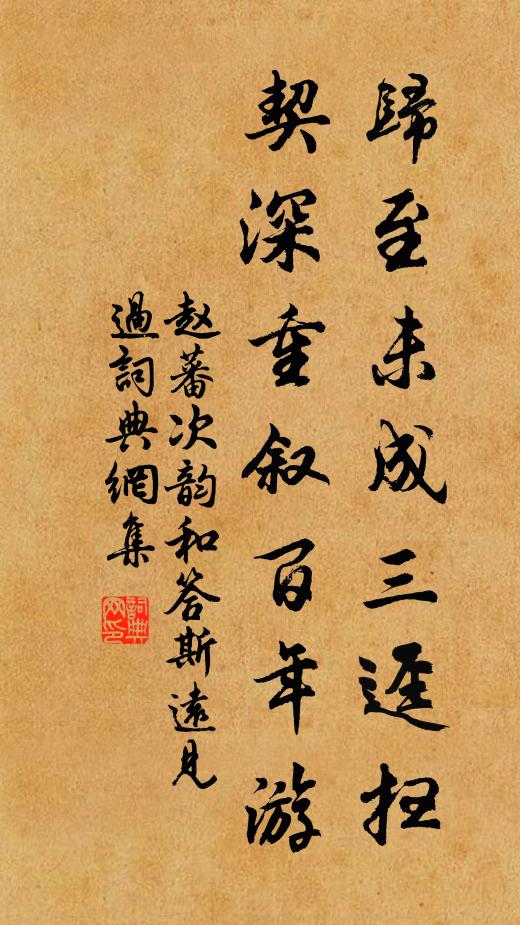 歸至未成三逕扫
契深重叙百年游
赵蕃次韵和答斯遠見
過詞典網集
詞典
网印